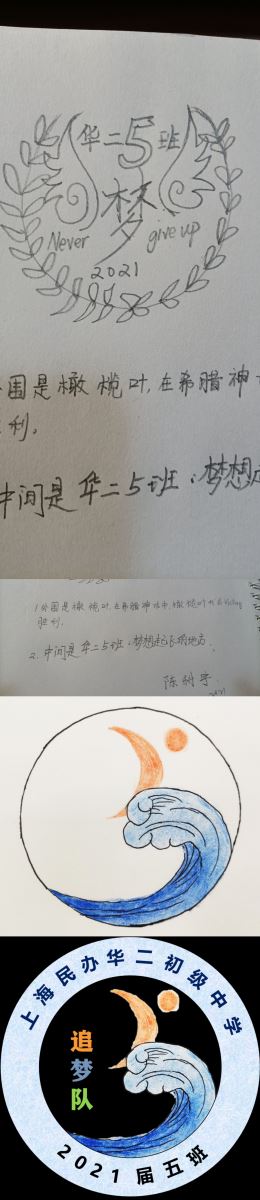 华二5班
梦
Never give up
2021
外围是橄榄叶,在希腊神
胜利。
中间是华二5班:梦想
1.外围是橄榄叶,在希腊神话中,橄榄叶代表victory
胜利。
2.中间是华二5班:梦想起飞的地方。
2021
上海民办华二初级中学
追
梦
队
2021届五班